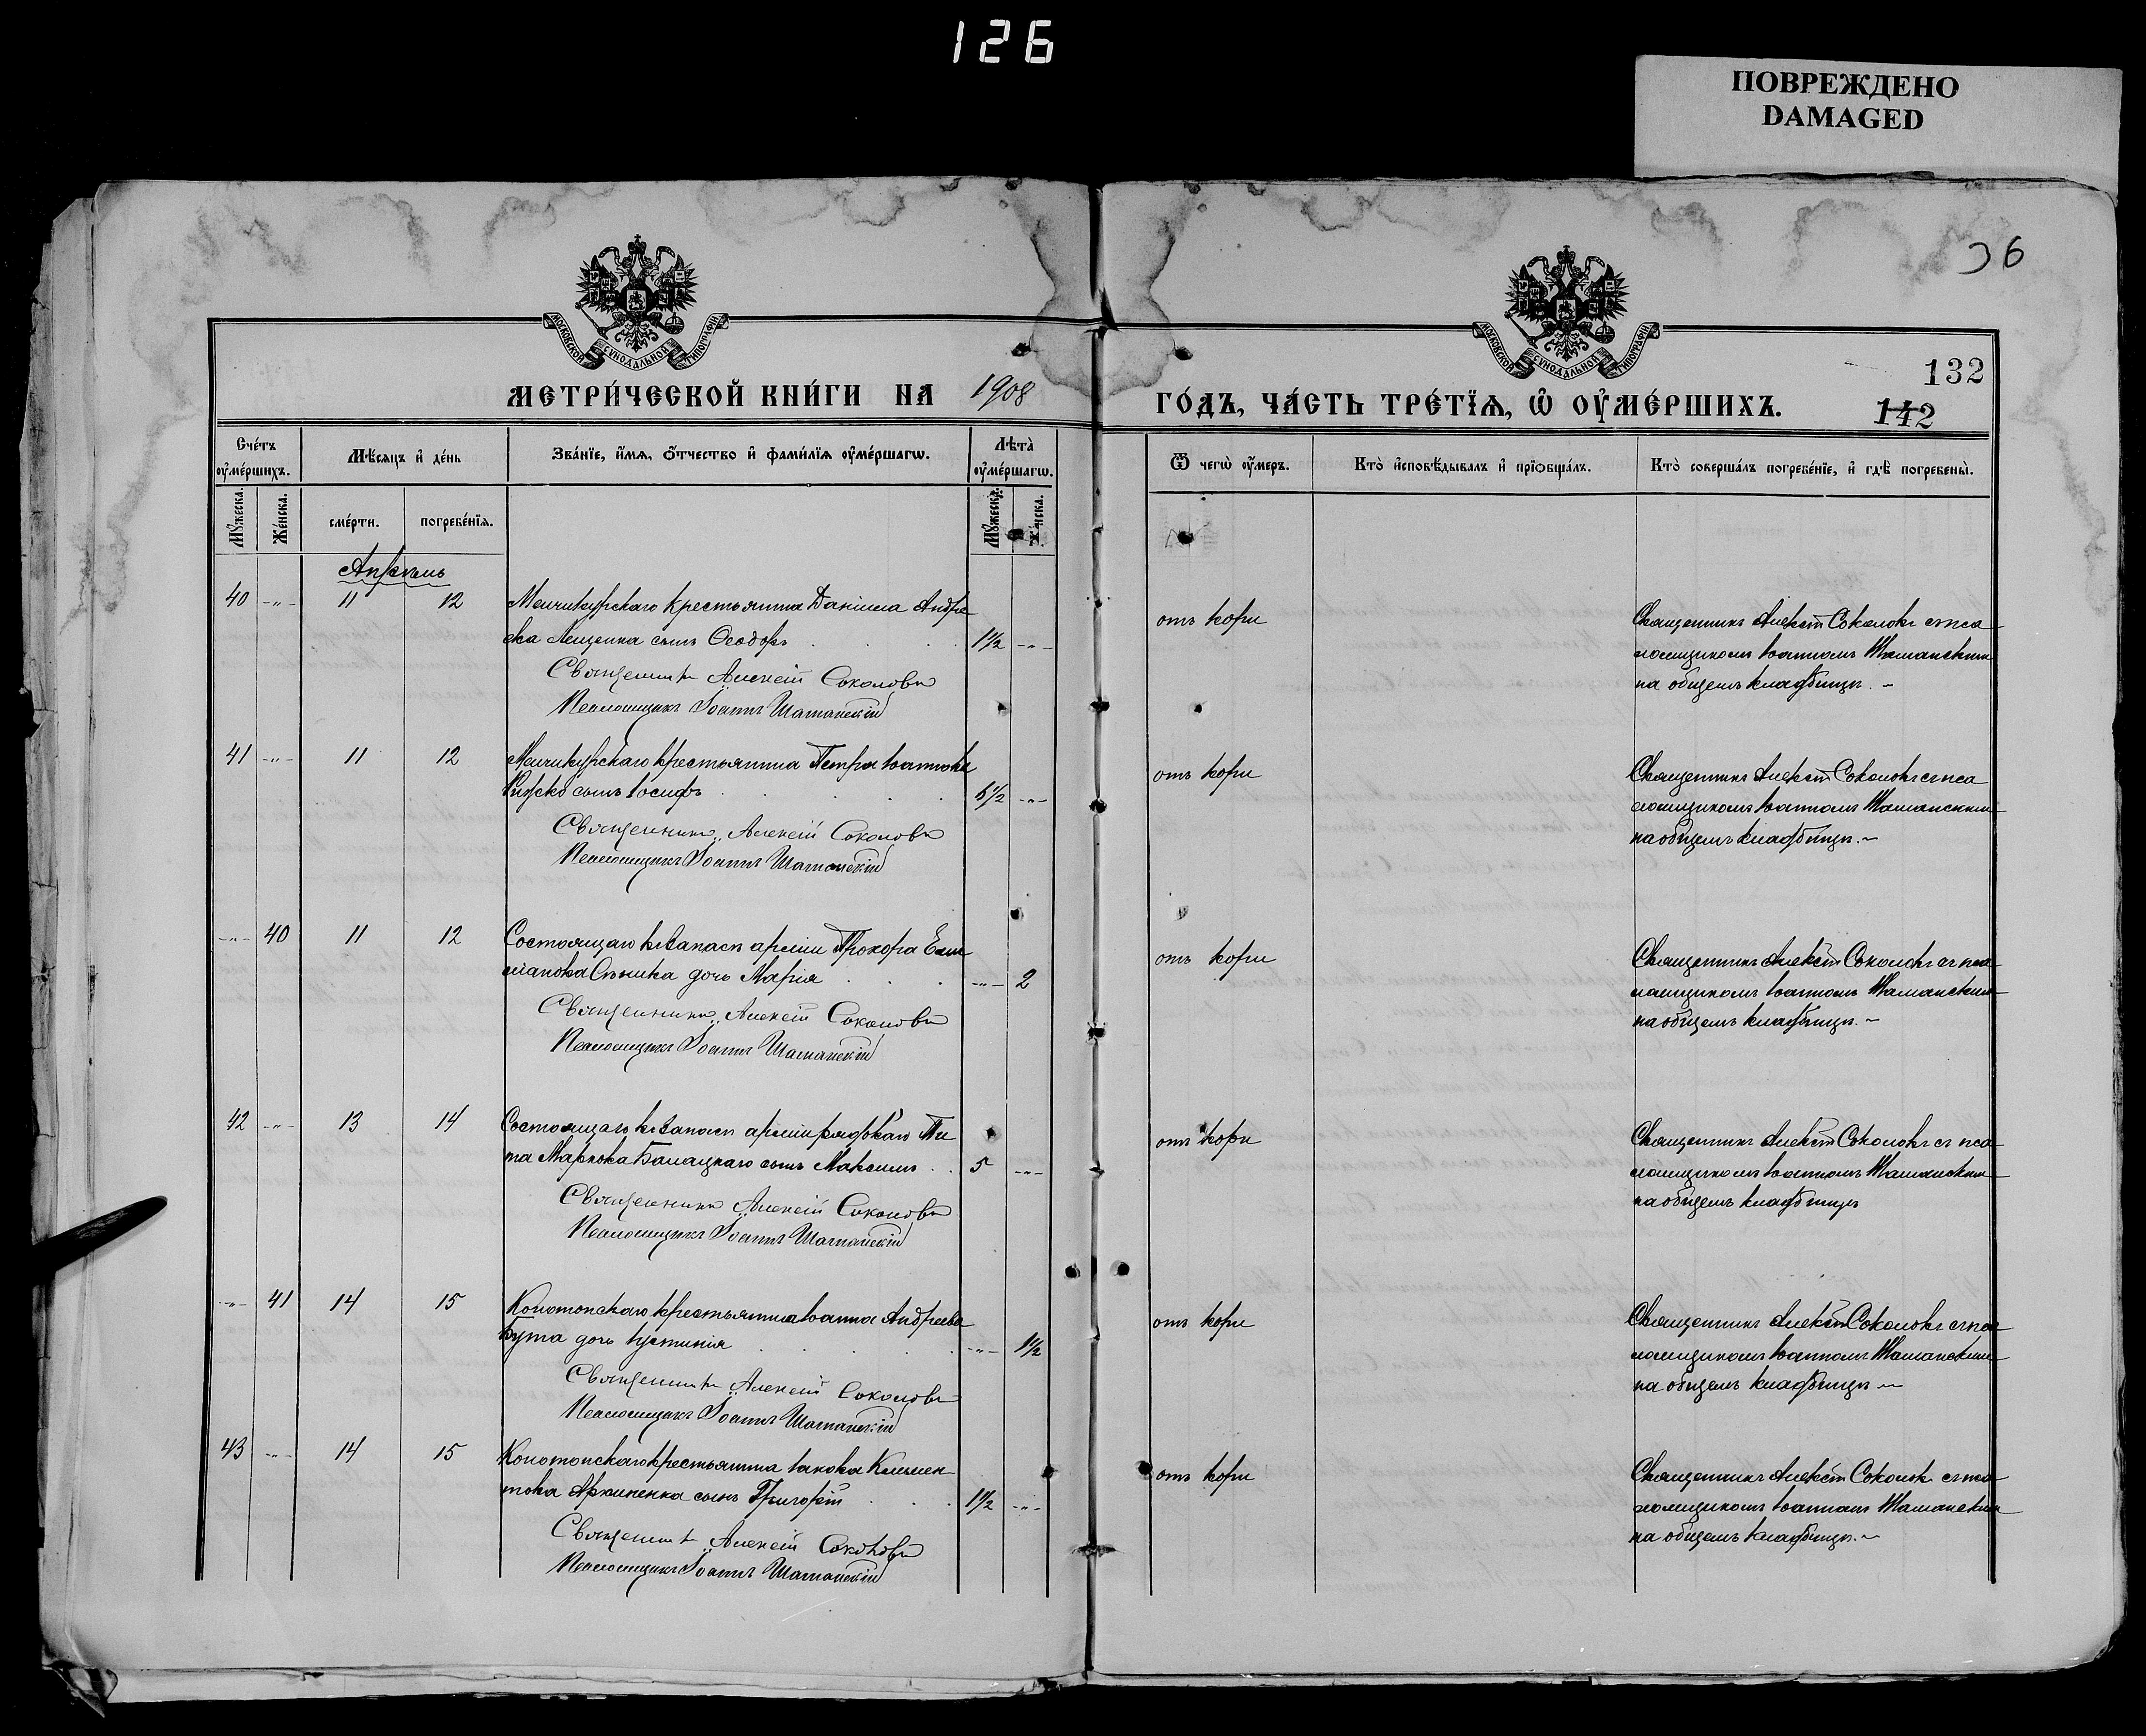 126
ПОВРЕЖДЕНО
DAMAGED
36
МОСКОВСКОЙ СУНОДАЛЬНОЙ ТИПОГРАФІИ
МОСКОВСКОЙ СУНОДАЛЬНОЙ ТИПОГРАФІИ
132
142
МЕТРИ́ЧЕСКОЙ КНИ́ГИ НА 1908
ГО́ДЪ, ЧА́СТЬ ТРЕ́ТЇѦ, Ѽ ОУ҆МЕ́РШИХЪ.
Сче́тъ оу҆ме́ршихъ.
Мѣ́сяцъ и҆ де́нь
Зва́нїе, и҆́мѧ, ѻ҆́тчество и҆ фами́лїѧ оу҆ме́ршагѡ.
Лѣ̀та̀ оу҆ме́ршагѡ.
Ѿ чегѡ̀ оу҆́меръ.
Кто̀ и҆сповѣ́дывалъ и҆ прїѡбща́лъ.
Кто̀ соверша́лъ погребе́нїе, и҆ гдѣ̀ погребены̀.
Мꙋ́жеска.
Же́нска.
сме́рти.
погребе́нїѧ.
Мꙋ́жеска.
Же́нска.
Апрѣль
40 -"- 11 12 Менчикурскаго крестьянина Даніила Андре-
ева Лещенка сынъ Ѳеодоръ . . . 1½ -"-
Священникъ Алексій Соколовъ
Псаломщикъ Іоаннъ Шаманскій
отъ кори
Священникъ Алексій Соколовъ съ пса-
ломщикомъ Іоанномъ Шаманскимъ
на общемъ кладбищѣ. ~
41 -"- 11 12 Менчикурскаго крестьянина Петра Іоаннова
сынъ Іосифъ . . . -"-
Священникъ Алексій Соколовъ
Псаломщикъ Іоаннъ Шаманскій
отъ кори
Священникъ Алексій Соколовъ съ пса-
ломщикомъ Іоанномъ Шаманскимъ
на общемъ кладбищѣ. ~
-"- 40 11 12 Состоящаго въ запасѣ арміи Прохора Еме-
ліанова дочь Марія . . . -"- 2
Священникъ Алексій Соколовъ
Псаломщикъ Іоаннъ Шаманскій
отъ кори
Священникъ Алексій Соколовъ съ пса-
ломщикомъ Іоанномъ Шаманскимъ
на общемъ кладбищѣ. ~
42 -"- 13 14 Состоящаго въ запасѣ арміи рядового Ти-
та Маркова Балацкаго сынъ Максимъ . . 5 -"-
Священникъ Алексій Соколовъ
Псаломщикъ Іоаннъ Шаманскій
отъ кори
Священникъ Алексій Соколовъ съ пса-
ломщикомъ Іоанномъ Шаманскимъ
на общемъ кладбищѣ
-"- 41 14 15 Конотопскаго крестьянина Іоанна Андреева
Бута дочь Іустинія . . . -"- 1½
Священникъ Алексій Соколовъ
Псаломщикъ Іоаннъ Шаманскій
отъ кори
Священникъ Алексій Соколовъ съ пса-
ломщикомъ Іоанномъ Шаманскимъ
на общемъ кладбищѣ ~
43 -"- 14 15 Конотопскаго крестьянина Іакова Климен-
това Архипенка сынъ Григорій . . . 1½ -"-
Священникъ Алексій Соколовъ
Псаломщикъ Іоаннъ Шаманскій
отъ кори
Священникъ Алексій Соколовъ съ пса-
ломщикомъ Іоанномъ Шаманскимъ
на общемъ кладбищѣ. ~